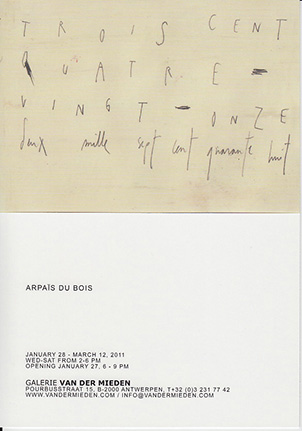 TROIS CENT
QUATRE -
VINGT - ONZE
deux mille sept cent quarante huit
ARPAÏS DU BOIS
JANUARY 28 - MARCH 12, 2011
WED-SAT FROM 2-6 PM
OPENING JANUARY 27, 6 - 9 PM
GALERIE VAN DER MIEDEN
POURBUSSTRAAT 15, B-2000 ANTWERPEN, T+32 (0)3 231 77 42
WWW.VANDERMIEDEN.COM / INFO@VANDERMIEDEN.COM